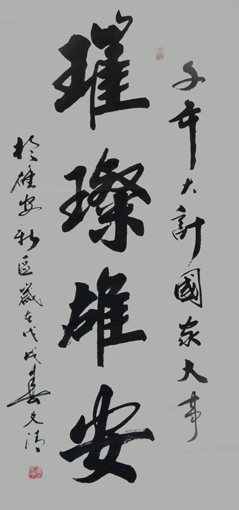 千年大计國家大事
璀璨雄安
於雄安新区歲在戊戌春文清